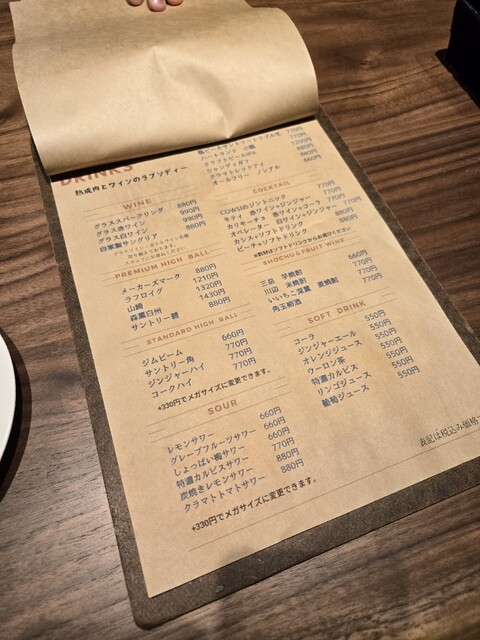 DRINKS
熟成肉とワインのラプソディー
WINE
グラススパークリング 880円
グラス赤ワイン 990円
グラス白ワイン 990円
自家製サングリア 880円
PREMIUM HIGH BALL
メーカーズマーク 880円
ラフロイグ 1210円
山崎 1320円
森薫白州 1430円
サントリー碧 880円
STANDARD HIGH BALL
ジムビーム 660円
サントリー角 770円
ジンジャーハイ 770円
コークハイ 770円
+330円でメガサイズに変更できます。
SOUR
レモンサワー 660円
グレープフルーツサワー 660円
しょっぱい梅サワー 660円
特濃カルピスサワー 770円
炭焼きレモンサワー 880円
クラマトトマトサワー 880円
+330円でメガサイズに変更できます。
770円
ハートランド 小瓶 770円
クラフトビールIPA 1200円
シャンディガフ 880円
オールフリー ノンアル 660円
COCKTAIL
COWSIのジントニック 770円
キティ 赤ワイン×ジンジャー 770円
カリモーチョ 赤ワイン×コーラ 770円
オペレーター 白ワイン×ジンジャー 770円
カシス×ソフトドリンク 880円
ピーチ×ソフトドリンク 880円
※割材はソフトドリンクからお選びください
SHOCHU&FRUIT WINE
三岳 芋焼酎 660円
川辺 米焼酎 770円
いいちこ深薫 麦焼酎 770円
角玉梅酒 770円
SOFT DRINK
コーラ 550円
ジンジャーエール 550円
オレンジジュース 550円
ウーロン茶 550円
特濃カルピス 550円
リンゴジュース 550円
葡萄ジュース 550円
表記は税込み価格